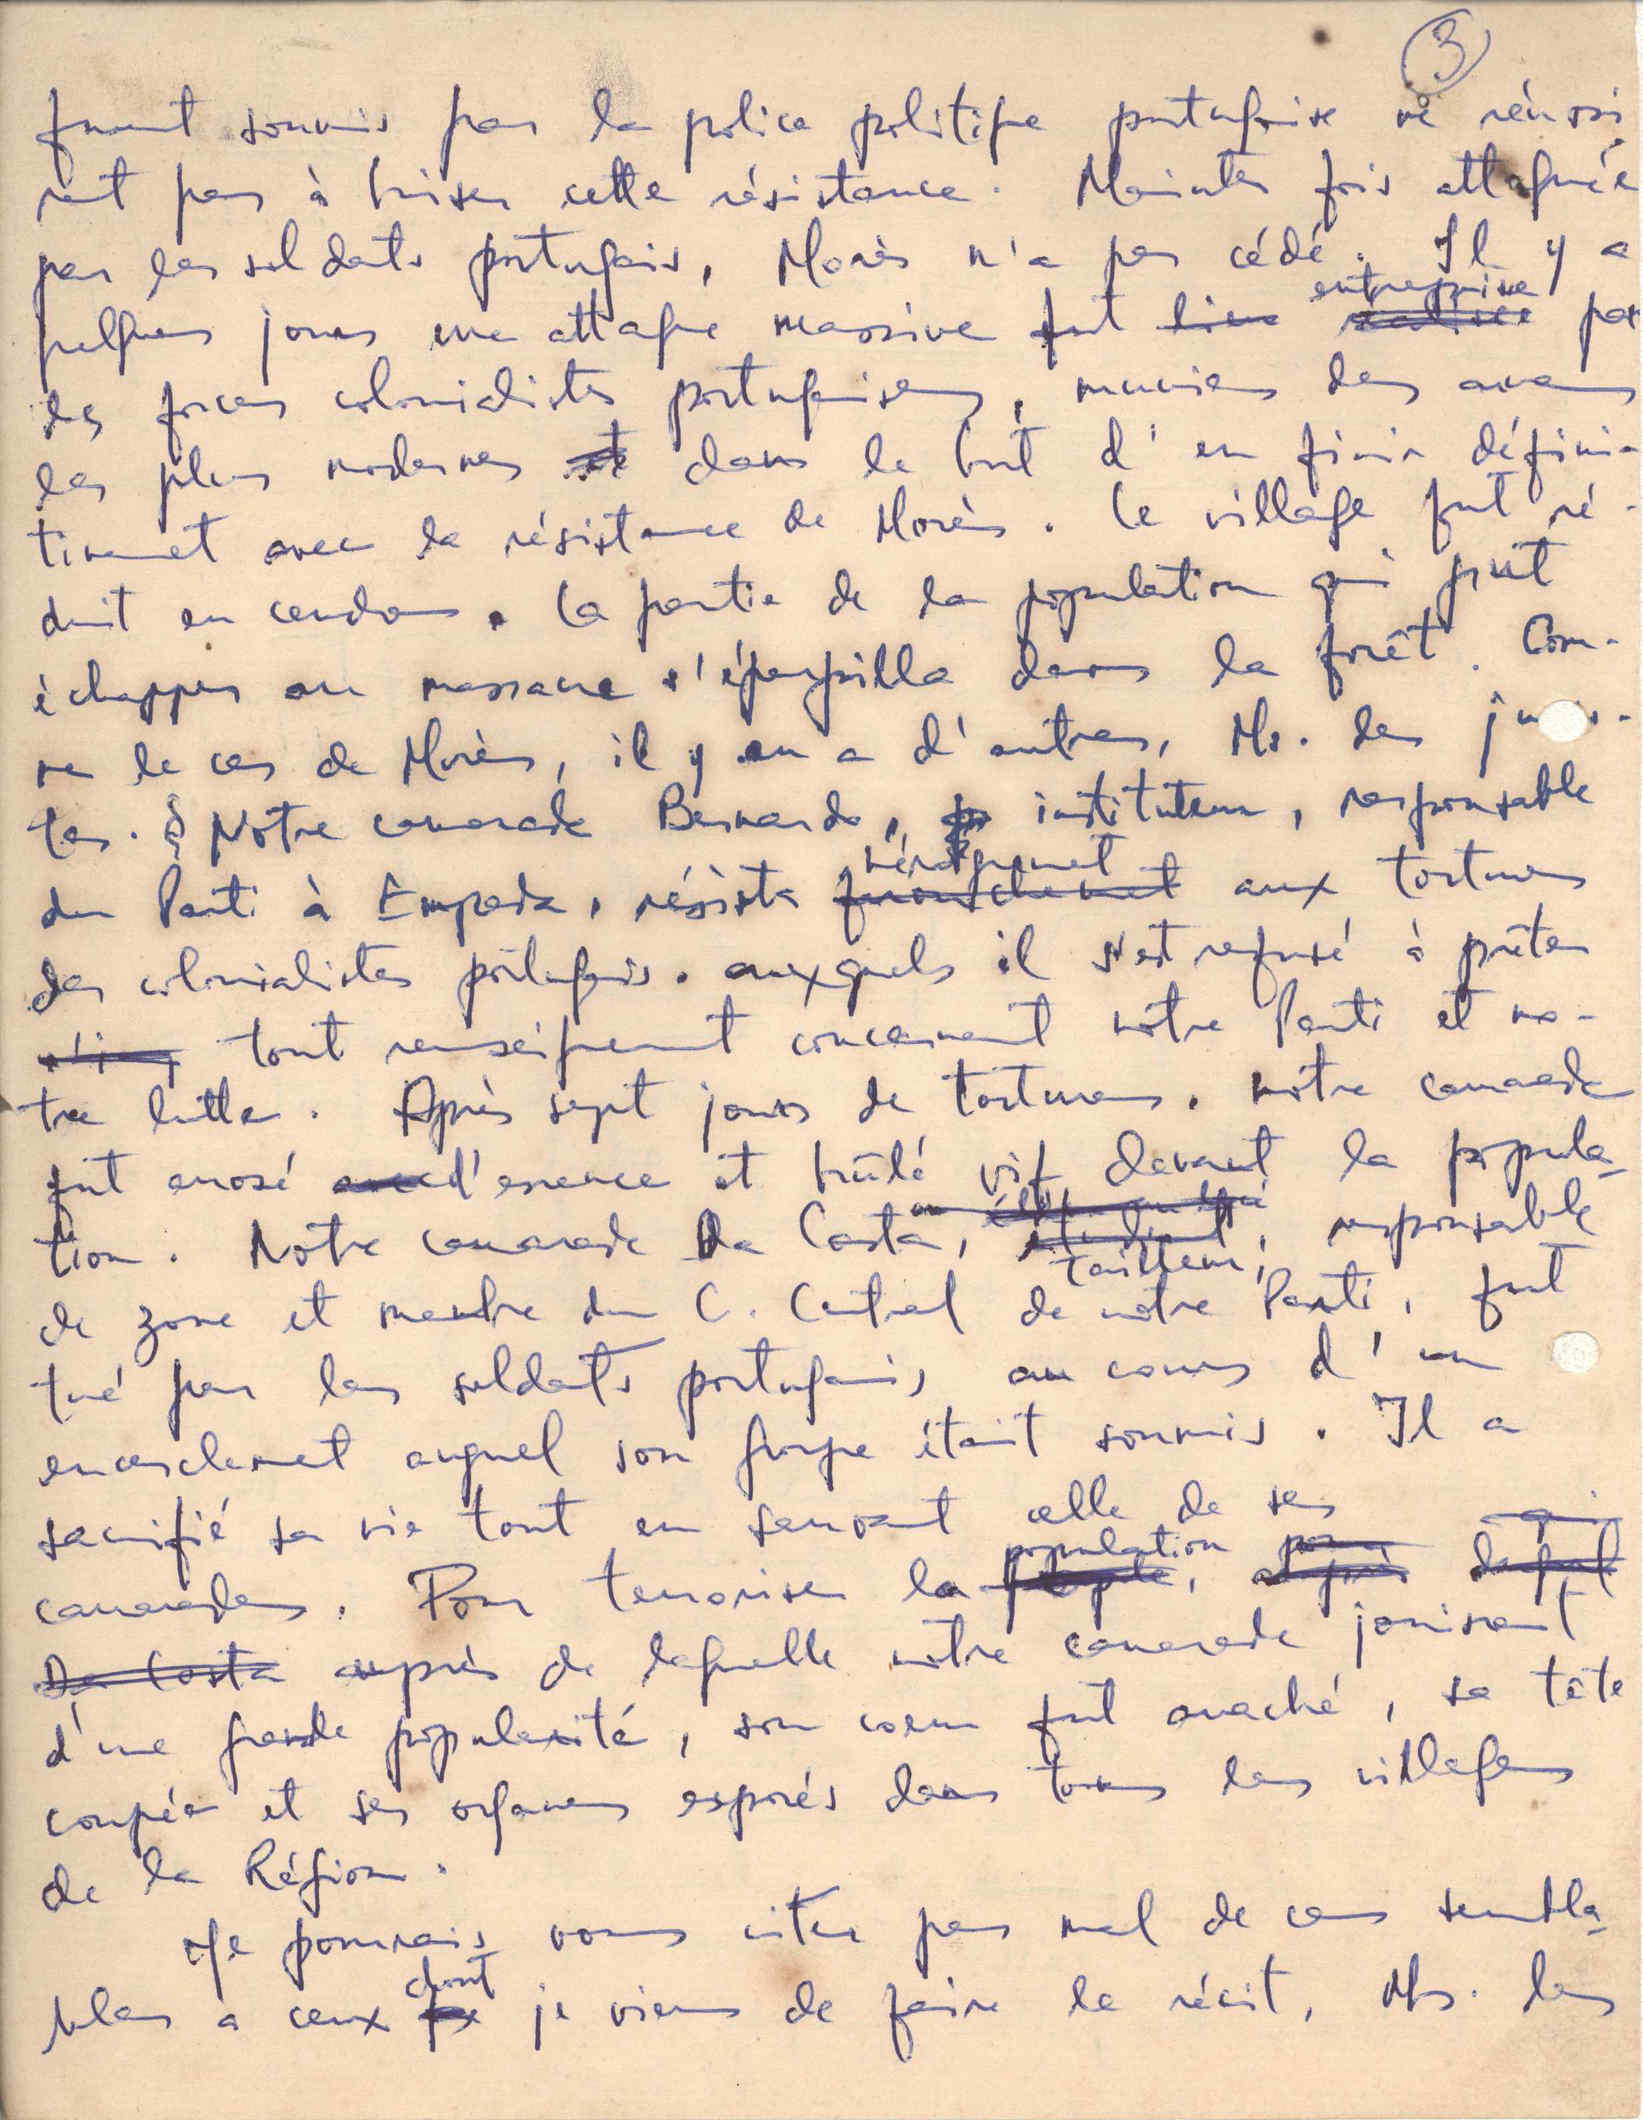 3
furent soumis par la police politique portugaise ne réussi
rent pas à briser cette résistance. Maintes fois attaquée
par les soldats portugais, Morès n'a pas cédé. Il y a
entreprise
quelques jours une attaque massive fut lieu par
des forces colonialistes portugaises, munies des armes
les plus modernes et dans le but d'en finir défini-
tivement avec la résistance de Morès. Ce village fut ré-
duit en cendres. La partie de la population qui put
échapper au massacre s'éparpilla dans la forêt. Com-
me le cas de Morès, il y en a d'autres, Ms. les juris-
tes. § Notre camarade Bernardo, instituteur, responsable
héroïquement
du Parti à Empada, résista farouchement aux tortures
des colonialistes portugais. auxquels il s'est refusé à prêter
tout renseignement concernant notre Parti et no-
tre lutte. Après sept jours de tortures, notre camarade
fut arrosé avec d'essence et brûlé vif devant la popula-
tion. Notre camarade Da Costa, étudiant, responsable
tailleur,
de zone et membre du C. Central de notre Parti, fut
tué par les soldats portugais, au cours d'un
encerclement auquel son groupe était soumis. Il a
sacrifié sa vie tout en sauvant celle de ses
population pour qui
camarades. Pour terroriser la peuple,
Da Costa auprès de laquelle notre camarade jouissait
d'une grande popularité, son coeur fut arraché, sa tête
coupée et ses organes exposés dans tous les villages
de la Région.
Je pourrais vous citer pas mal de cas sembla-
dont
bles à ceux que je viens de faire le récit, Ms. les